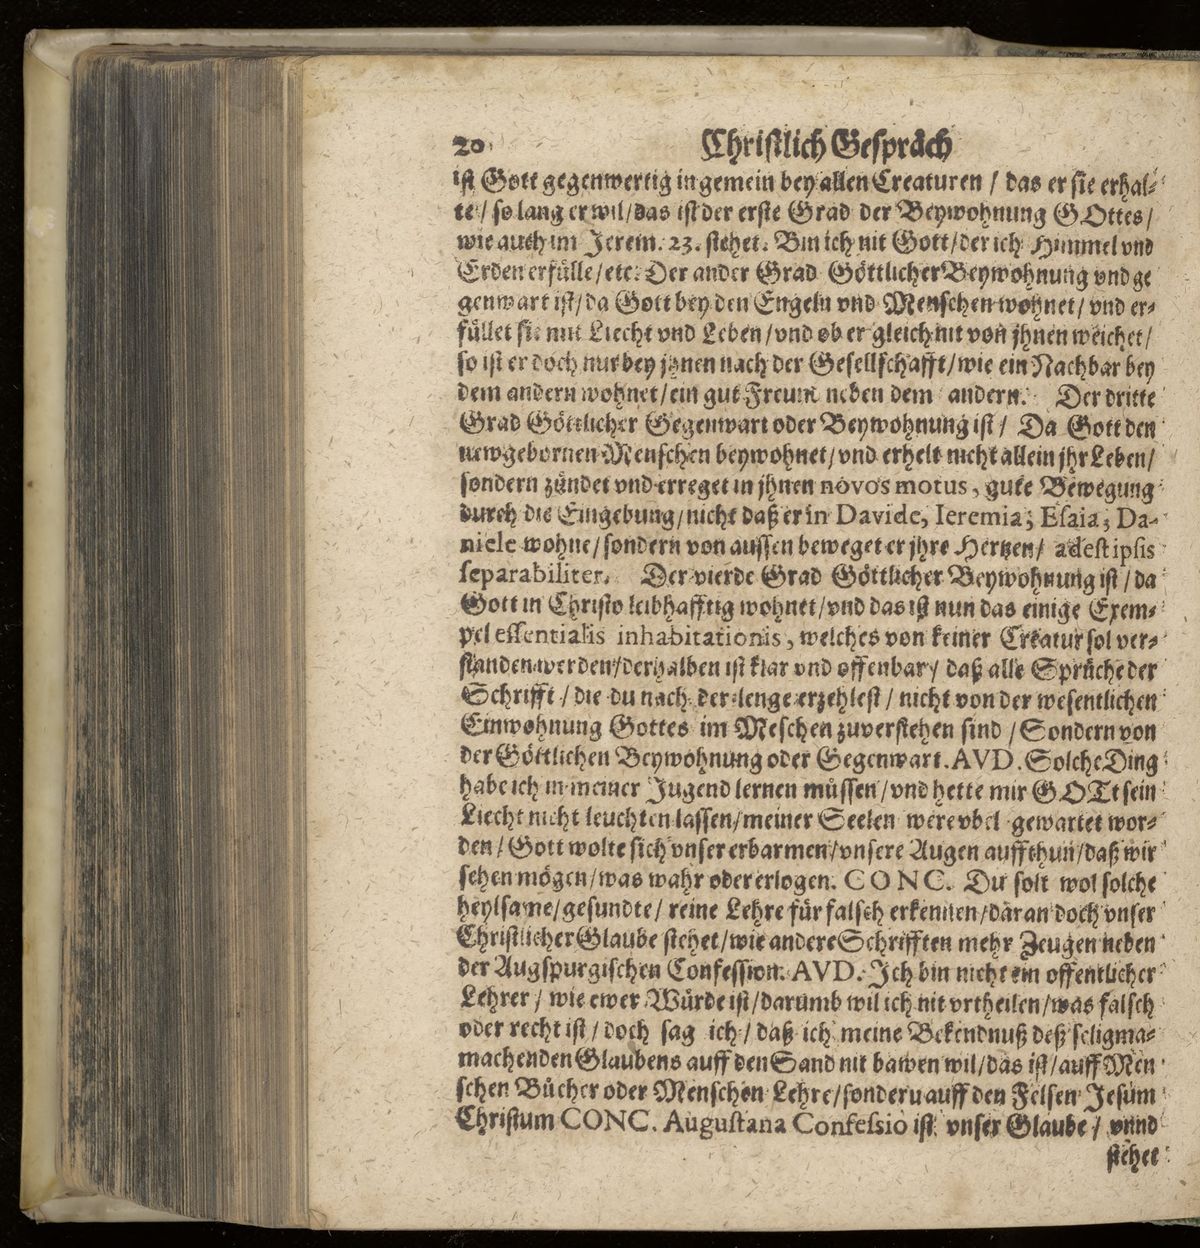 20 Christlich Gespräch
ist Gott gegenwertig in gemein bey allen Creaturen / das er sie erhal-
te / so lang er wil / das ist der erste Grad der Beywohnung GOttes /
wie auch im Jerem. 23. stehet. Bin ich nit Gott / der ich Himmel vnd
Erden erfülle / etc. Der ander Grad Göttlicher Beywohnung vnd ge
genwart ist / da Gott bey den Engeln vnd Menschen wohnet / vnd er-
füllet sie mit Liecht vnd Leben / vnd ob er gleich nit von jhnen weichet /
so ist er doch nur bey jhnen nach der Gesellschafft / wie ein Nachbar bey
dem andern wohnet / ein gut Freunt neben dem andern. Der dritte
Grad Göttlicher Gegenwart oder Beywohnung ist / Da Gott den
newgebornen Menschen beywohnet / vnd erhelt nicht allein jhr Leben /
sondern zündet vnd erreget in jhnen novos motus, gute Bewegung
durch die Eingebung / nicht daß er in Davide, Ieremia, Esaia, Da-
niele wohne / sondern von aussen beweget er jhre Hertzen / adest ipsis
separabiliter. Der vierde Grad Göttlicher Beywohnung ist / da
Gott in Christo leibhafftig wohnet / vnd das ist nun das einige Exem-
pel essentialis inhabitationis, welches von keiner Creatur sol ver-
standen werden / derhalben ist klar vnd offenbar / daß alle Sprüche der
Schrifft / die du nach der lenge erzehlest / nicht von der wesentlichen
Einwohnung Gottes im Meschen zuverstehen sind / Sondern von
der Göttlichen Beywohnung oder Gegenwart. AVD. Solche Ding
habe ich in meiner Jugend lernen müssen / vnd hette mir GOTt sein
Liecht nicht leuchten lassen / meiner Seelen were vbel gewartet wor-
den / Gott wolte sich vnser erbarmen / vnsere Augen auffthun / daß wir
sehen mögen / was wahr oder erlogen. CONC. Du solt wol solche
heylsame / gesundte / reine Lehre für falsch erkennen / daran doch vnser
Christlicher Glaube stehet / wie andere Schrifften mehr Zeugen neben
der Augspurgischen Confession. AVD. Ich bin nicht ein offentlicher
Lehrer / wie ewer Würde ist / darumb wil ich nit vrtheilen / was falsch
oder recht ist / doch sag ich / daß ich meine Bekendnuß deß seligma-
machenden Glaubens auff den Sand nit bawen wil / das ist / auff Men
schen Bücher oder Menschen Lehre / sonderu auff den Felsen Jesum
Christum CONC. Augustana Confessio ist vnser Glaube / vnnd
stehet